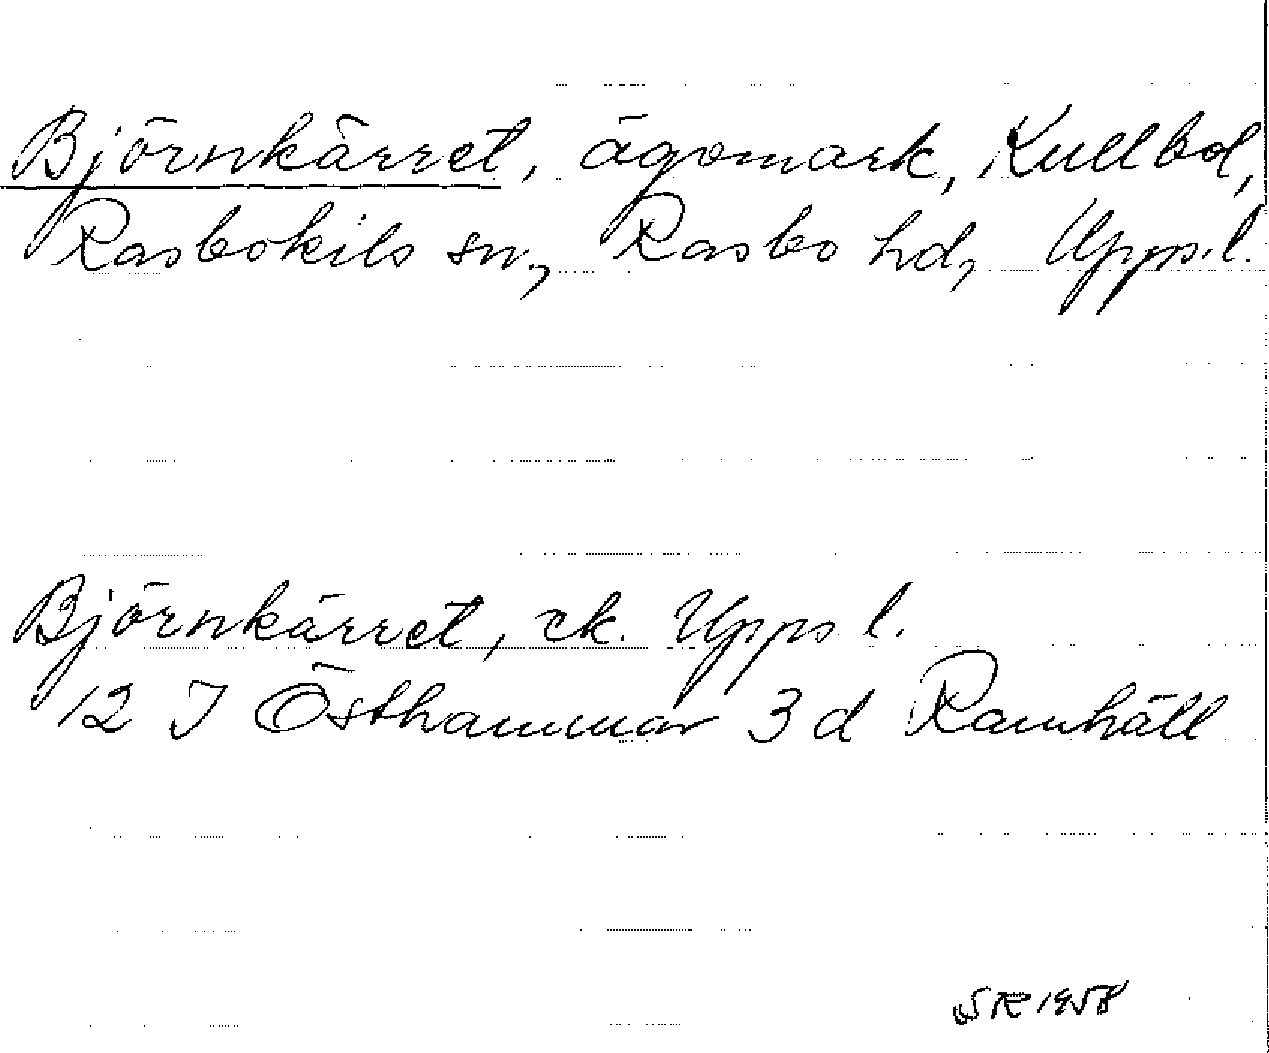 Björnkärret, ägomark, Kullbol,
Rasbokils sn., Rasbo hd, Upps.l.
Björnkärret, ek. Upps l.
12 I Östhammar 3 d Ramhäll
SR 1958